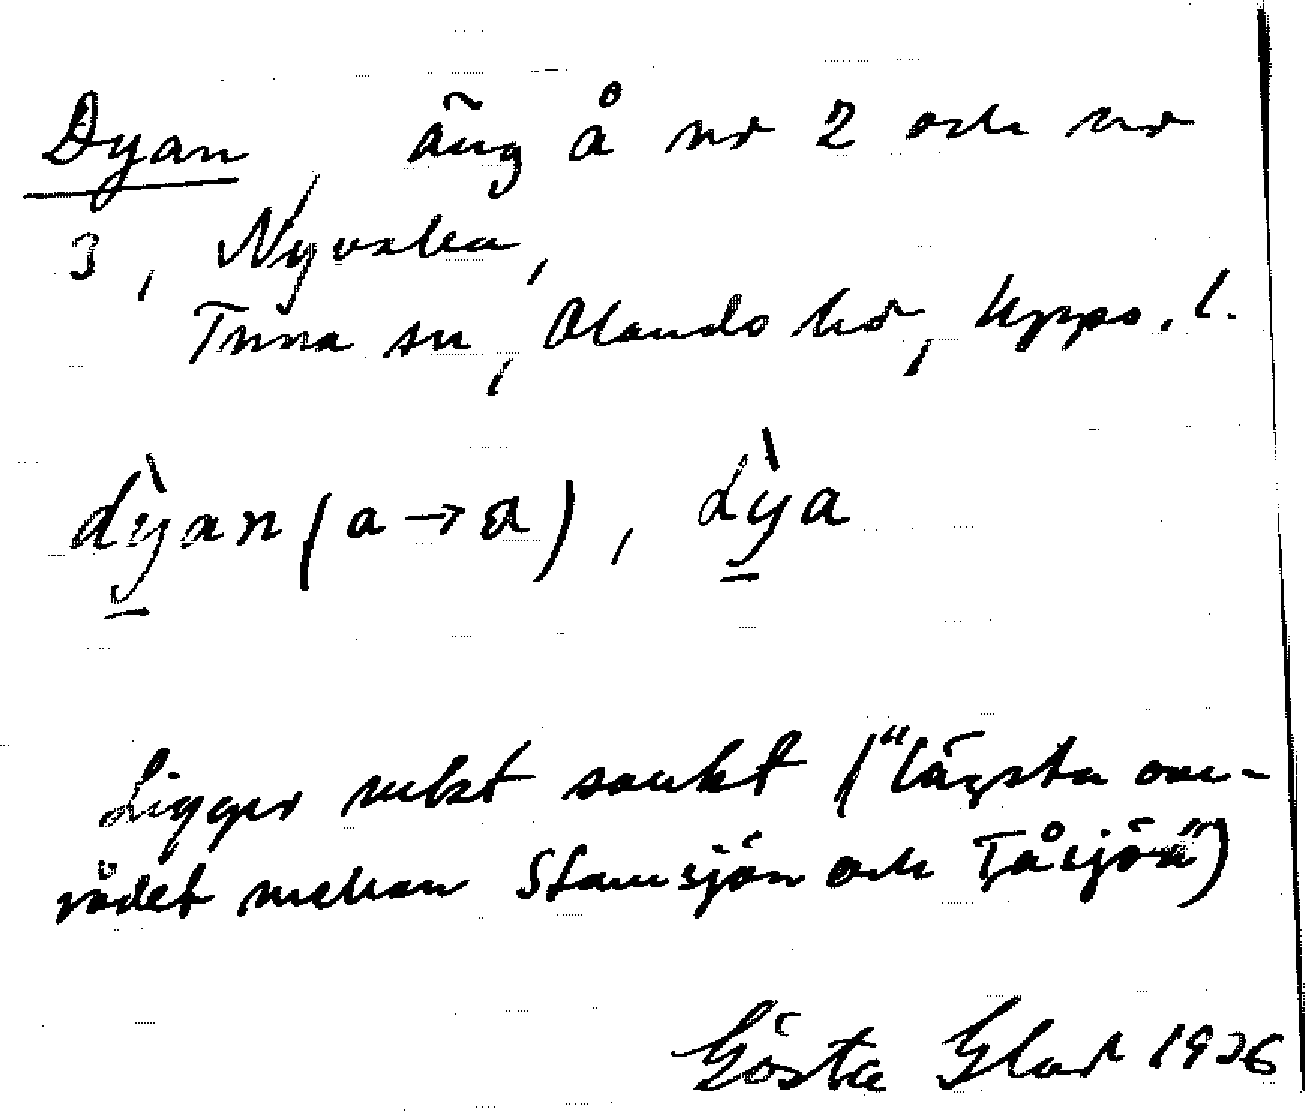 Dyan, äng å nr 2 och nr
3, Nyvalla,
Tuna sn, Olands hd, Upps. l.
dỳan (a → ɑ), dỳa
Ligger mkt sankt ("lägsta om-
rådet mellan Stamsjön och Tåsjön")
Gösta Glad 1926